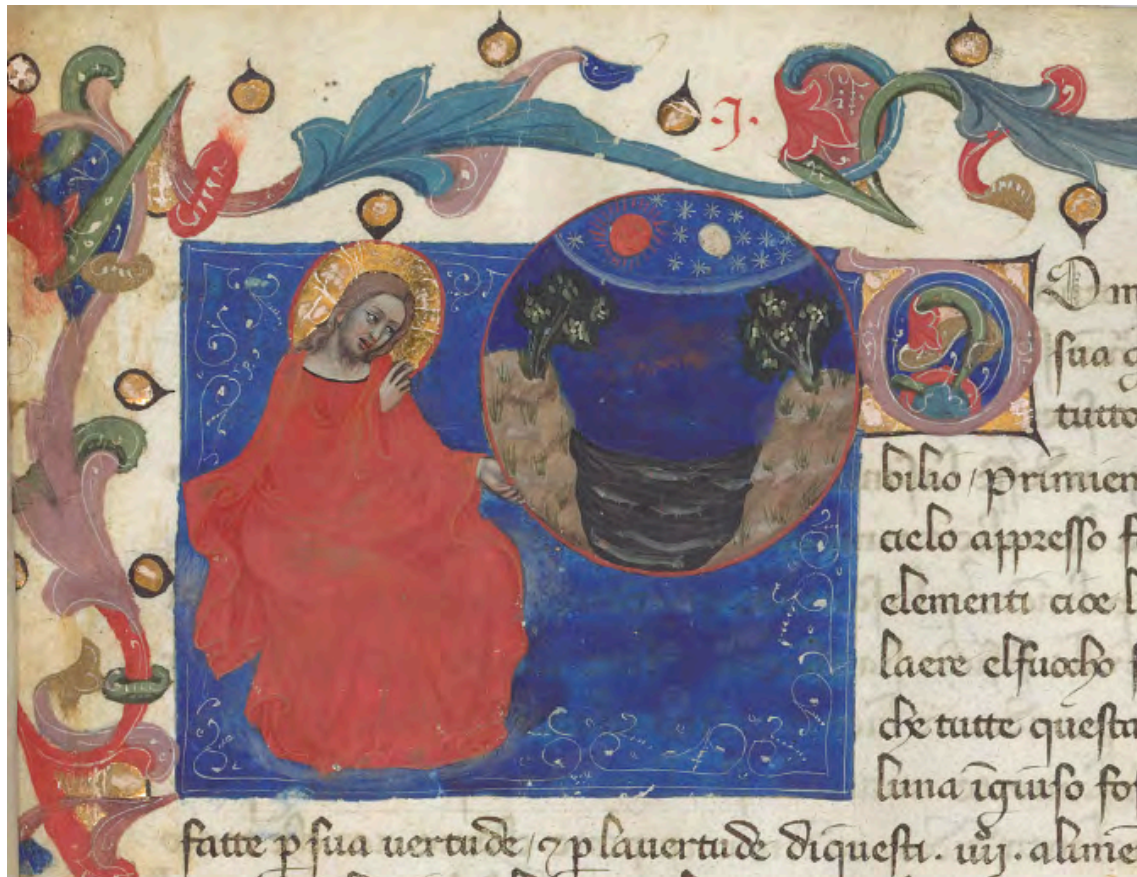 .J.
Om
sua g
tutto
bilio / Primien
cielo appresso f
elementi cioe l
laere elfuocho f
che tutte questa
luna īguiso for
fatte p̲ sua uertude / ⁊ p̲ lauertude diquesti . iiij . alimen